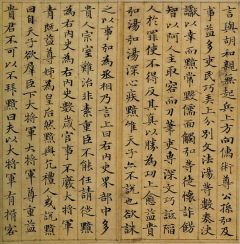 言與胡和親無起兵上方向儒術尊公孫弘及
事益多吏民巧弄上分別文法湯等數奏決
讞以幸而黯常毀儒面觸弘等徒懷詐飾
智以阿人主取容而刀筆吏專深文巧詆陷
人於罪使不得反其真以勝為功上愈益貴
弘湯弘湯深心疾黯唯天子亦不說也欲誅
之以事弘為丞相乃言上曰右內史界部中多
貴人宗室難治非素重臣不能任請徙黯
為右內史為右內史數歲官事不廢大將軍
青既益尊姊為皇后然黯與亢禮人或說黯
曰自天子欲群臣下大將軍大將軍尊重益
貴君不可以不拜黯曰夫以大將軍有揖客